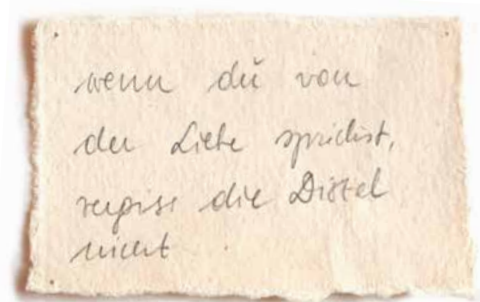 wenn du von
der Liebe sprichst,
vergiss die Distel
nicht